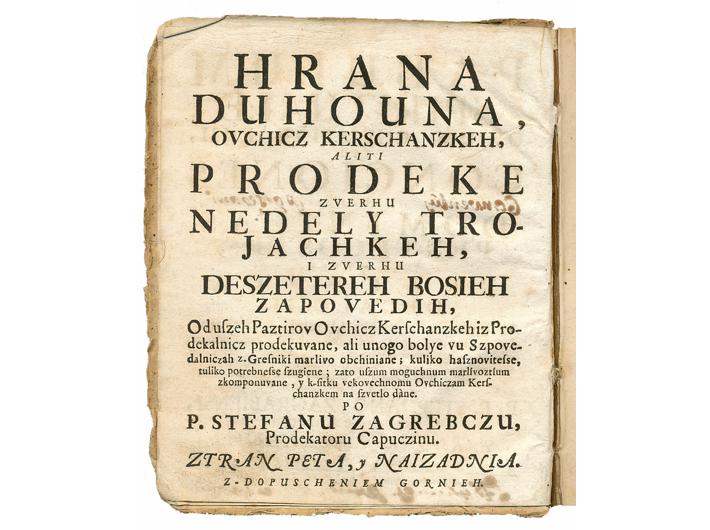 HRANA
DUHOUNA,
OVCHICZ KERSCHANZKEH,
ALITI
PRODEKE
ZVERHU
NEDELY TRO-
JACHKEH,
I ZVERHU
DESZETEREH BOSIEH
ZAPOVEDIH,
Od uſzeh Paztirov Ovchicz Kerſchanzkeh iz Pro-
dekalnicz prodekuvane, ali unogo bolye vu Szpove-
dalniczah z-Greſniki marlivo obchiniane; kuliko haſznoviteſse,
tuliko potrebneſse ſzugiene; zato uſzum moguchnum marlſvoztſum
zkomponuvane, y k-ſitku vekovechnomu Ovchiczam Kerſ-
chanzkem na ſzvetlo dàne.
PO
P. STEFANU ZAGREBCZU,
Prodekatoru Capuczinu.
ZTRAN PETA, y NAIZADNIA.
Z-DOPUSCHENIEM GORNIEH.